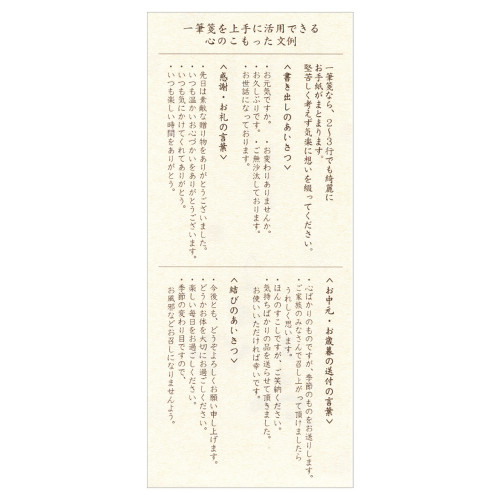 一筆箋を上手に活用できる
心のこもった文例
一筆箋なら、2〜3行でも綺麗に
お手紙がまとまります。
堅苦しく考えず気楽に想いを綴ってください。
＜書き出しのあいさつ＞
・お元気ですか。　・お変わりありませんか。
・お久しぶりです。・ご無沙汰しております。
・お世話になっております。
＜感謝・お礼の言葉＞
・先日は素敵な贈り物をありがとうございました。
・いつも温かいお心づかいをありがとうございます。
・いつも気にかけてくれてありがとう。
・いつも楽しい時間をありがとう。
＜お中元・お歳暮の送付の言葉＞
・心ばかりのものですが、季節のものをお送りします。
・ご家族のみなさんで召し上がって頂けましたら
うれしく思います。
・ほんのすこしですが、ご笑納ください。
・気持ちばかりの品を送らせて頂きました。
お使いいただければ幸いです。
＜結びのあいさつ＞
・今後とも、どうぞよろしくお願い申し上げます。
・どうかお体を大切にお過ごしください。
・楽しい毎日をお過ごしください。
・季節の変わり目ですので、
お風邪などお召しになりませんよう。